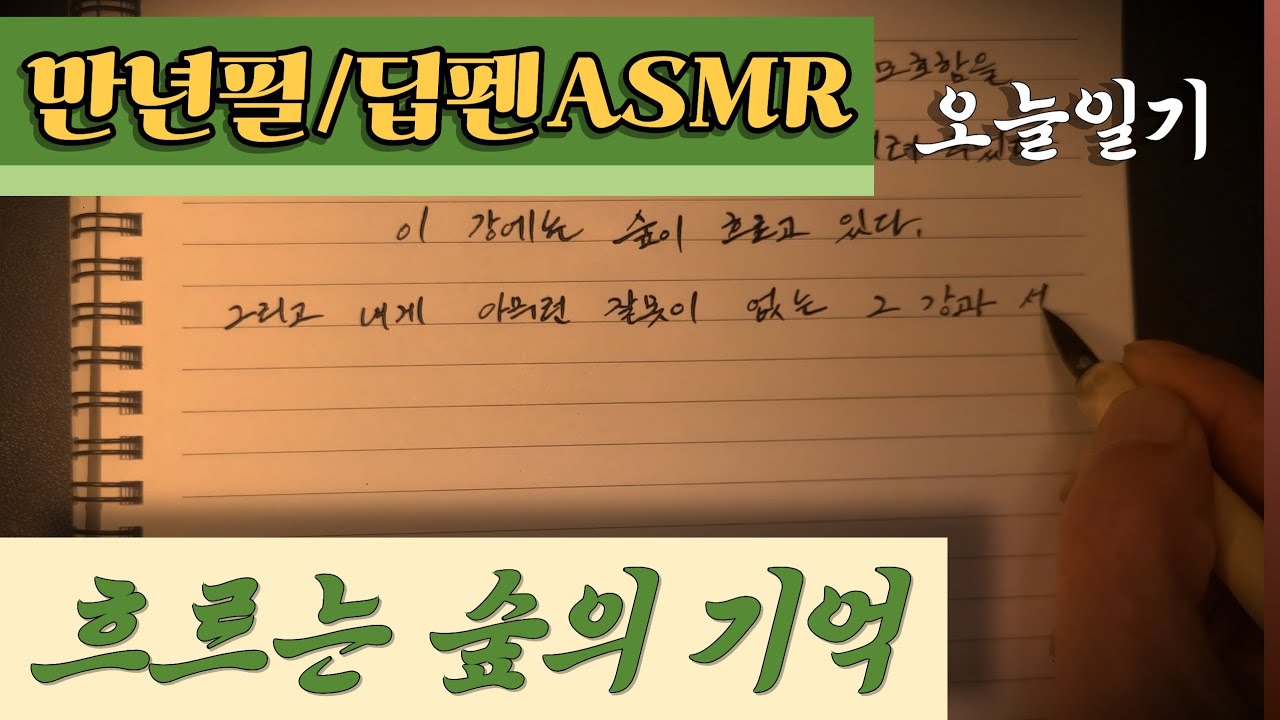 만년필/딥펜ASMR
오늘일기
모호함을
이 강에는 숲이 흐르고 있다.
그리고 내게 아무런 잘못이 없는 그 강과 서
흐르는 숲의 기억